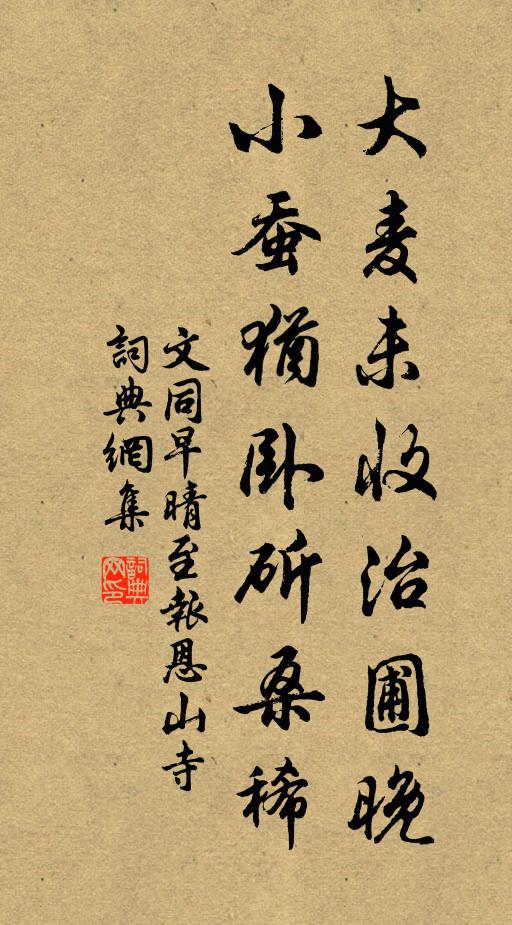 大麦未收治圃晚
小蚕犹卧斫桑稀
文同早晴至報恩山寺
詞典網集
詞典網印